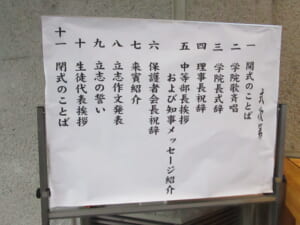 式次第
一 開式のことば
二 学院歌斉唱
三 学院長式辞
四 理事長祝辞
五 中等部長挨拶
および知事メッセージ紹介
六 保護者会長祝辞
七 来賓紹介
八 立志作文発表
九 立志の誓い
十 生徒代表挨拶
十一 閉式のことば